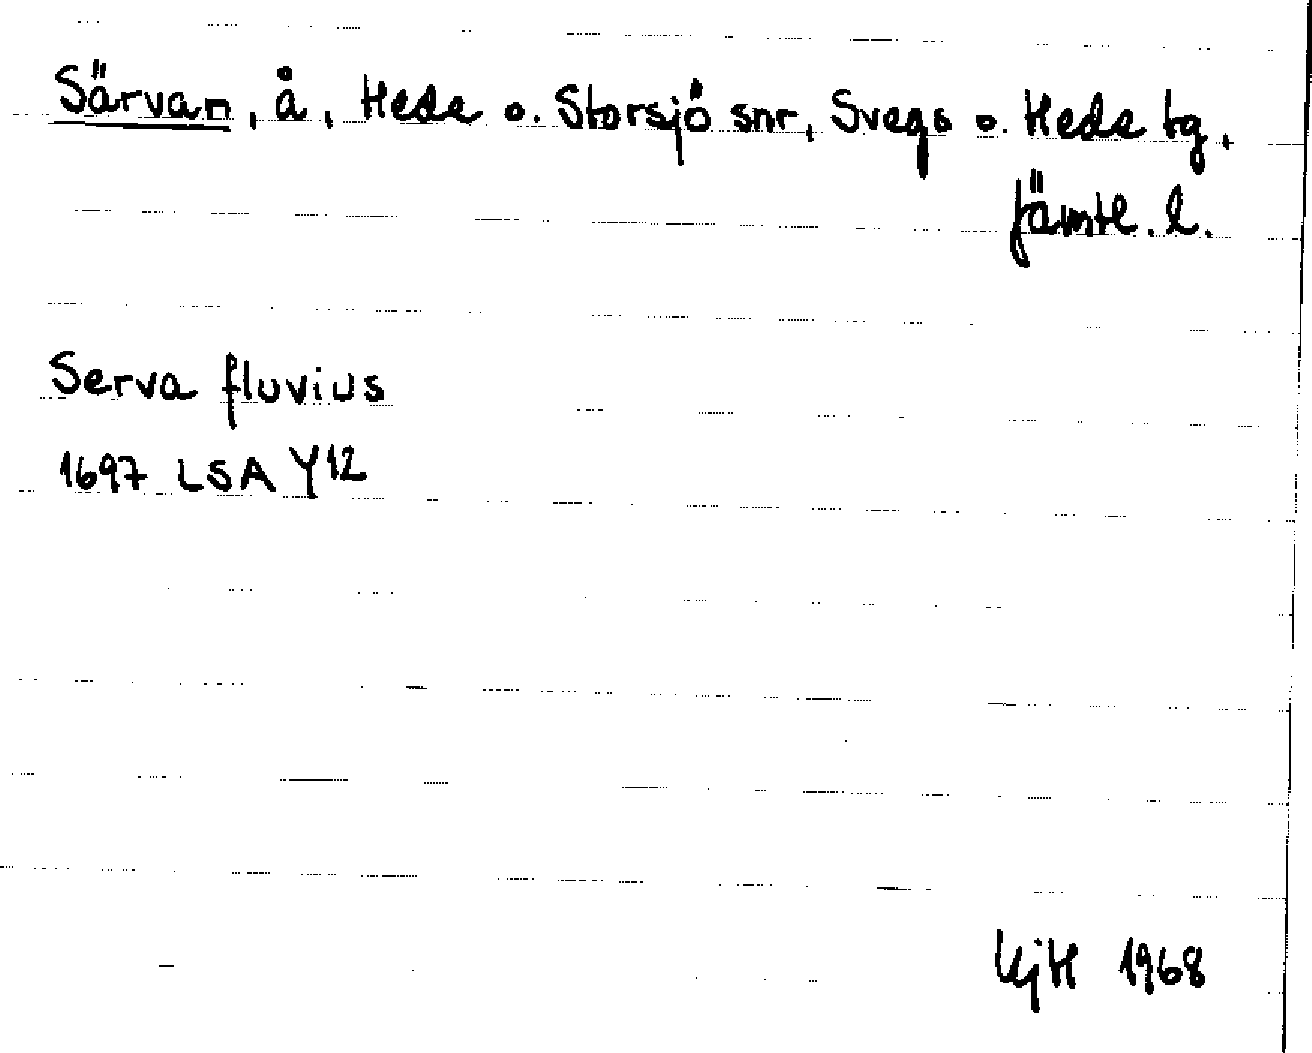 Särvan, å, Hede o. Storsjö snr, Svegs o. Hede tg,
Jämtl. l.
Serva fluvius
1697 LSA Y12
1968